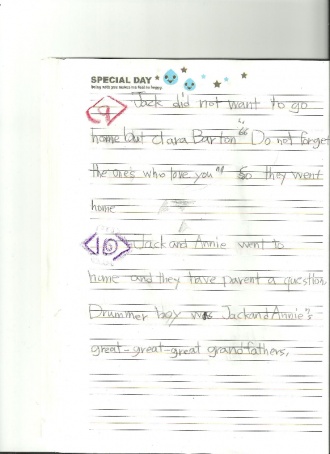 SPECIAL DAY
Being with you makes me feel so happy
9 Jack did not want to go
home but clara Barton, "Do not forget
the one's who love you" So they went
home
10 Jack and Annie went to
home and they have parent a question,
Drummer boy was Jack and Annie's
great-great-great grandfathers.